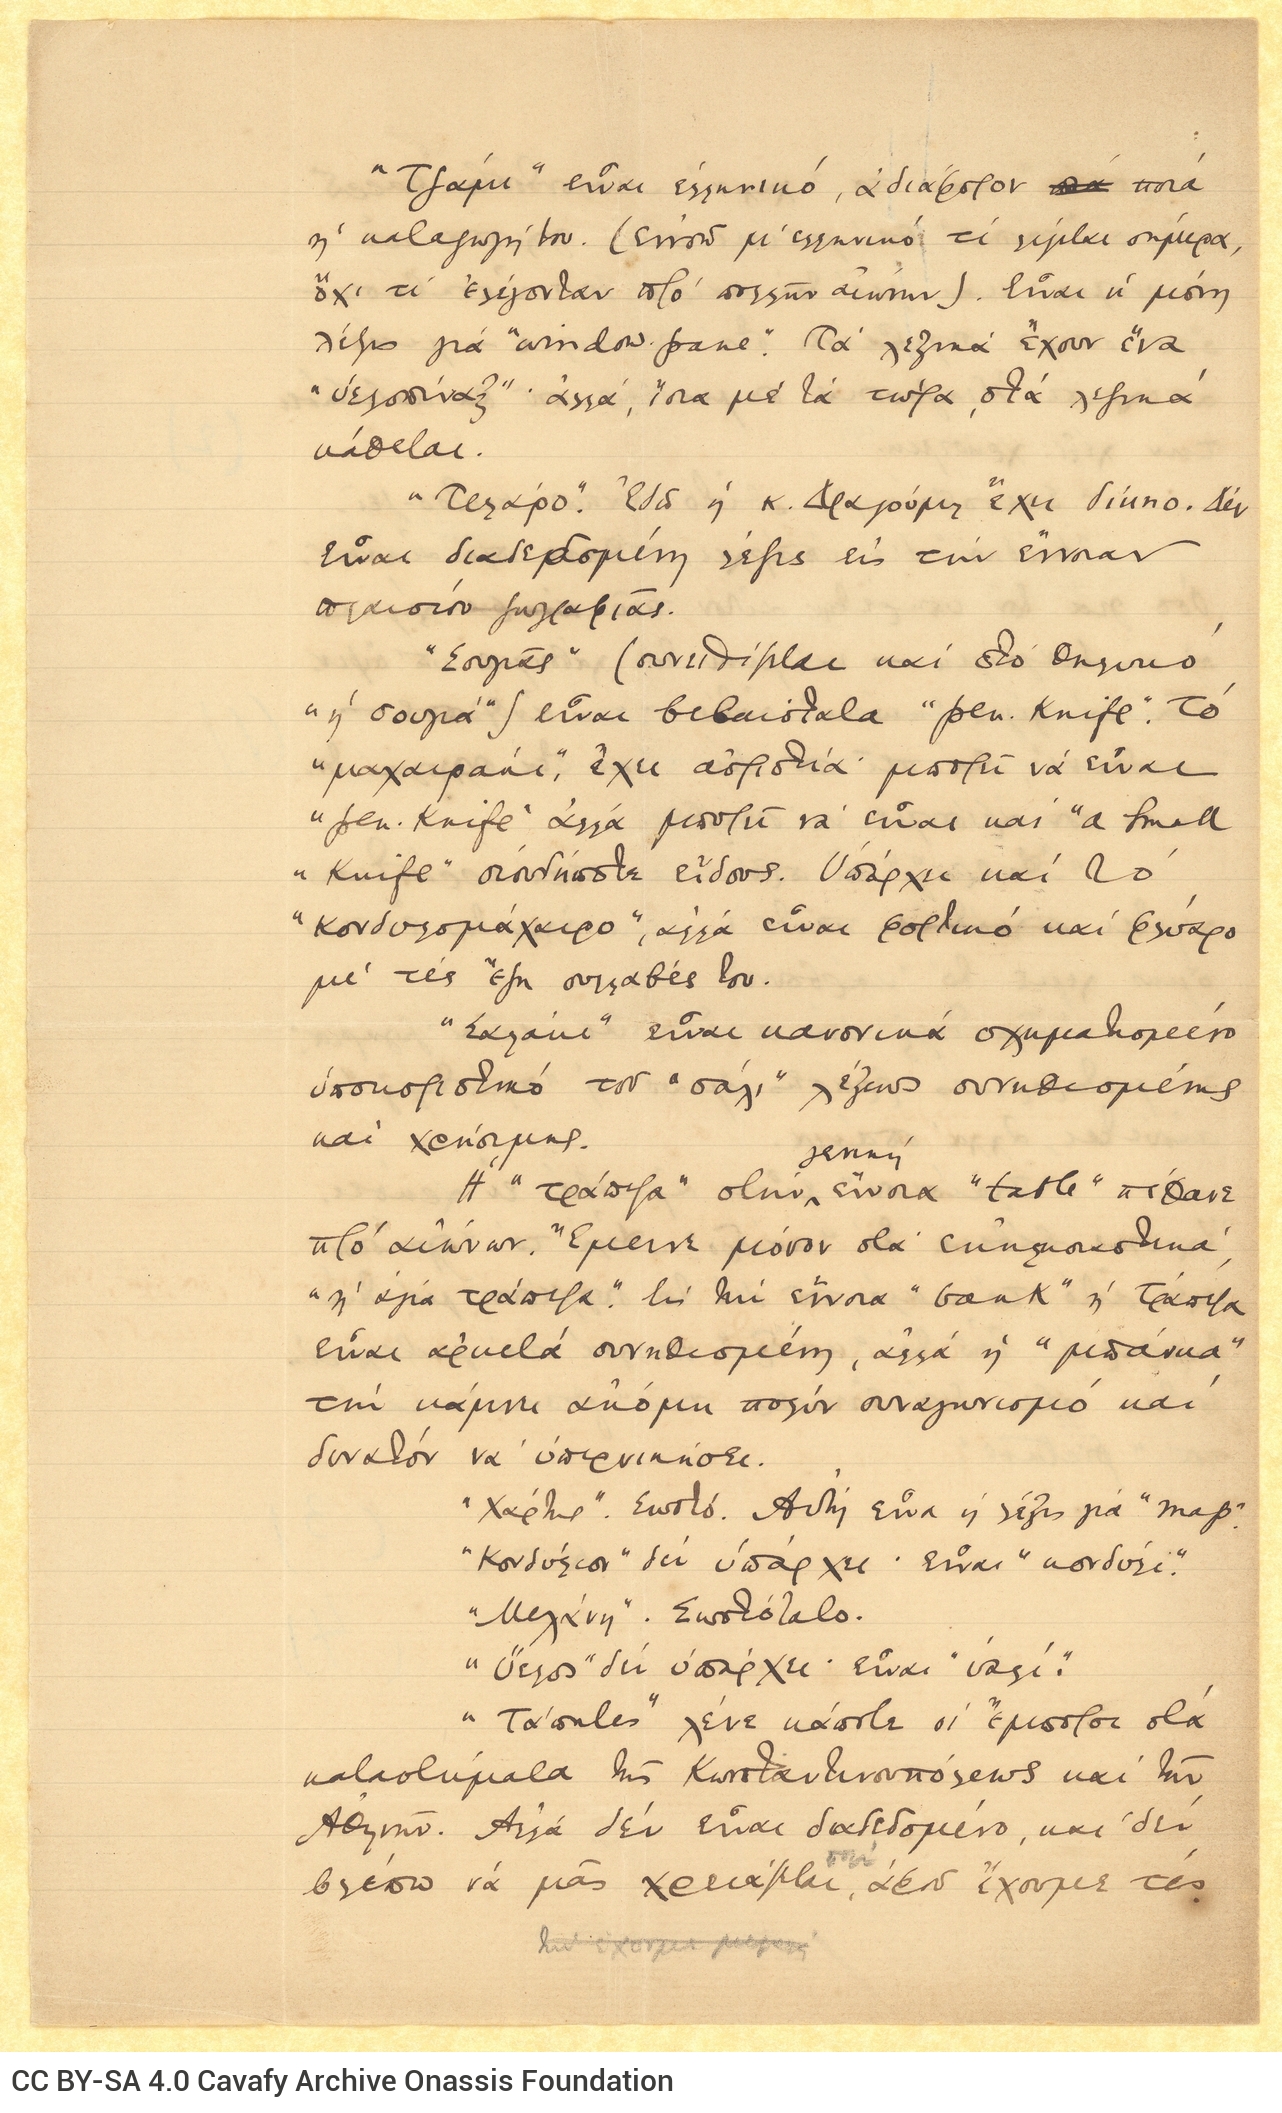 "Τζάμι" εἶναι ἑλληνικό, ἀδιάφορον ποιά
ἡ καταγωγή του. (Ἐννοῶ μέ ἑλληνικό τί λέγεται σήμερα,
ὄχι τί ἐλέγονταν πρό πολλῶν αἰώνων). Εἶναι ἡ μόνη
λέξις γιά "window-pane". Τά λεξικά ἔχουν ἕνα
"ὑελοπίναξ"· ἀλλά, ἴσα μέ τά τώρα, στά λεξικά
κάθεται.
"Τελάρο". Ἐδῶ ἡ κ. Δραγούμη ἔχει δίκηο. Δέν
εἶναι διαδεδομένη λέξις εἰς τήν ἔννοιαν
πλαισίου ζωγραφιᾶς.
"Σουγιᾶς" (συνειθίζεται καί στό θηλυκό
"ἡ σουγιά") εἶναι βεβαιότατα "pen-knife". Τό
"μαχαιράκι", ἔχει ἀοριστία· μπορεῖ νά εἶναι
"pen-knife" ἀλλά μπορεῖ νά εἶναι καί "a small
"knife" οἱουδήποτε εἴδους. Ὑπάρχει καί τό
"κονδυλομάχαιρο", ἀλλά εἶναι φορτικό καί φλύαρο
μέ τές ἕξη συλλαβές του.
"Σαλάκι" εἶναι κανονικά σχηματισμένο
ὑποκοριστικό τοῦ "σάλι" λέξεως συνηθισμένης
καί χρήσιμης.
γενική
Ἡ "τράπεζα" στήν ἔννοια "table" πέθανε
πρό αἰώνων. Ἔμεινε μόνον στά ἐκκλησιαστικά,
"ἡ ἁγία τράπεζα". Εἰς τήν ἔννοια "bank" ἡ τράπεζα
εἶναι ἀρκετά συνηθισμένη, ἀλλά ἡ "μπάνκα"
τήν κάμνει ἀκόμη πολύν συναγωνισμό καί
δυνατόν νά ὑπερνικήσει.
"Χάρτης". Σωστό. Αὐτή εἶναι ἡ λέξις γιά "map".
"Κονδύλιον" δέν ὑπάρχει· εἶναι "κονδύλι".
"Μελάνη". Σωστότατο.
"Ὕελος" δέν ὑπάρχει· εἶναι "ὑαλί".
"Τάπητες" λένε κάποτε οἱ ἔμποροι στά
καταστήματα τῆς Κωνσταντινουπόλεως καί τῶν
Ἀθηνῶν. Ἀλλά δέν εἶναι διαδεδομένο, καί δέν
βλέπω νά μᾶς χρειάζεται, ἀφοῦ ἔχουμε τές
CC BY-SA 4.0 Cavafy Archive Onassis Foundation